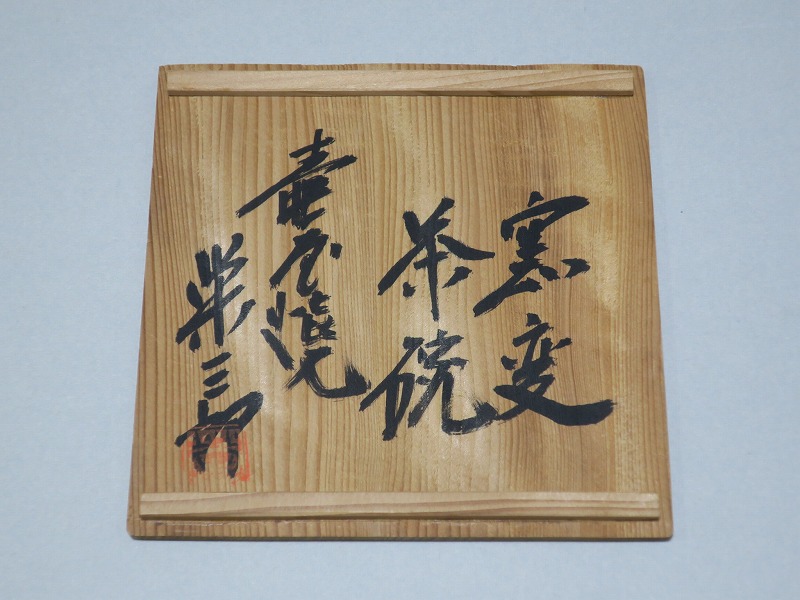 窯変
茶碗
壷屋焼
栄三郎